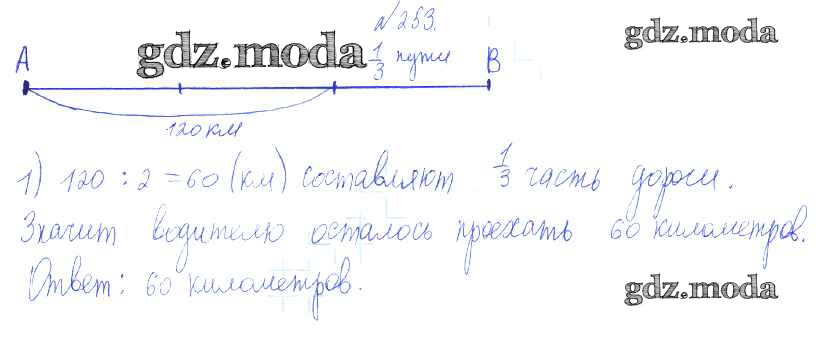 №253.
gdz.moda
gdz.moda
A 1/3 пути B
120 км
1) 120 : 2 = 60 (км) составляют 1/3 часть дороги.
Значит водителю осталось проехать 60 километров.
Ответ: 60 километров.
gdz.moda